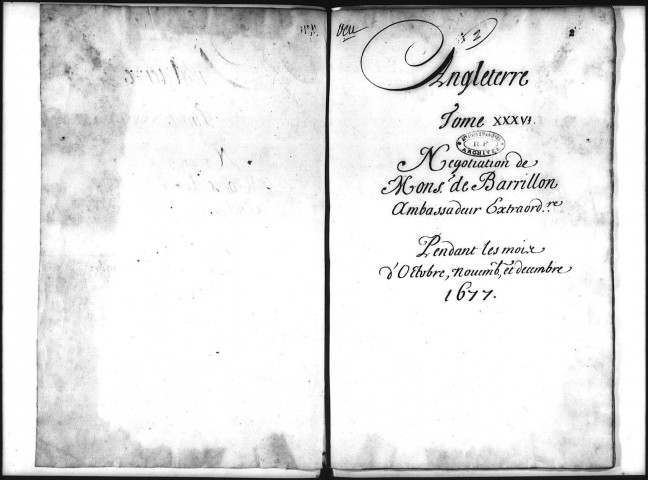 Veu
2
Angleterre
Tome XXXVI.
ARCHIVES
Negotiation de
Mons.r de Barrillon
Ambassadeur Extraord.re
Pendant les moix
d'Octobre, nouemb, et decembre
1677.